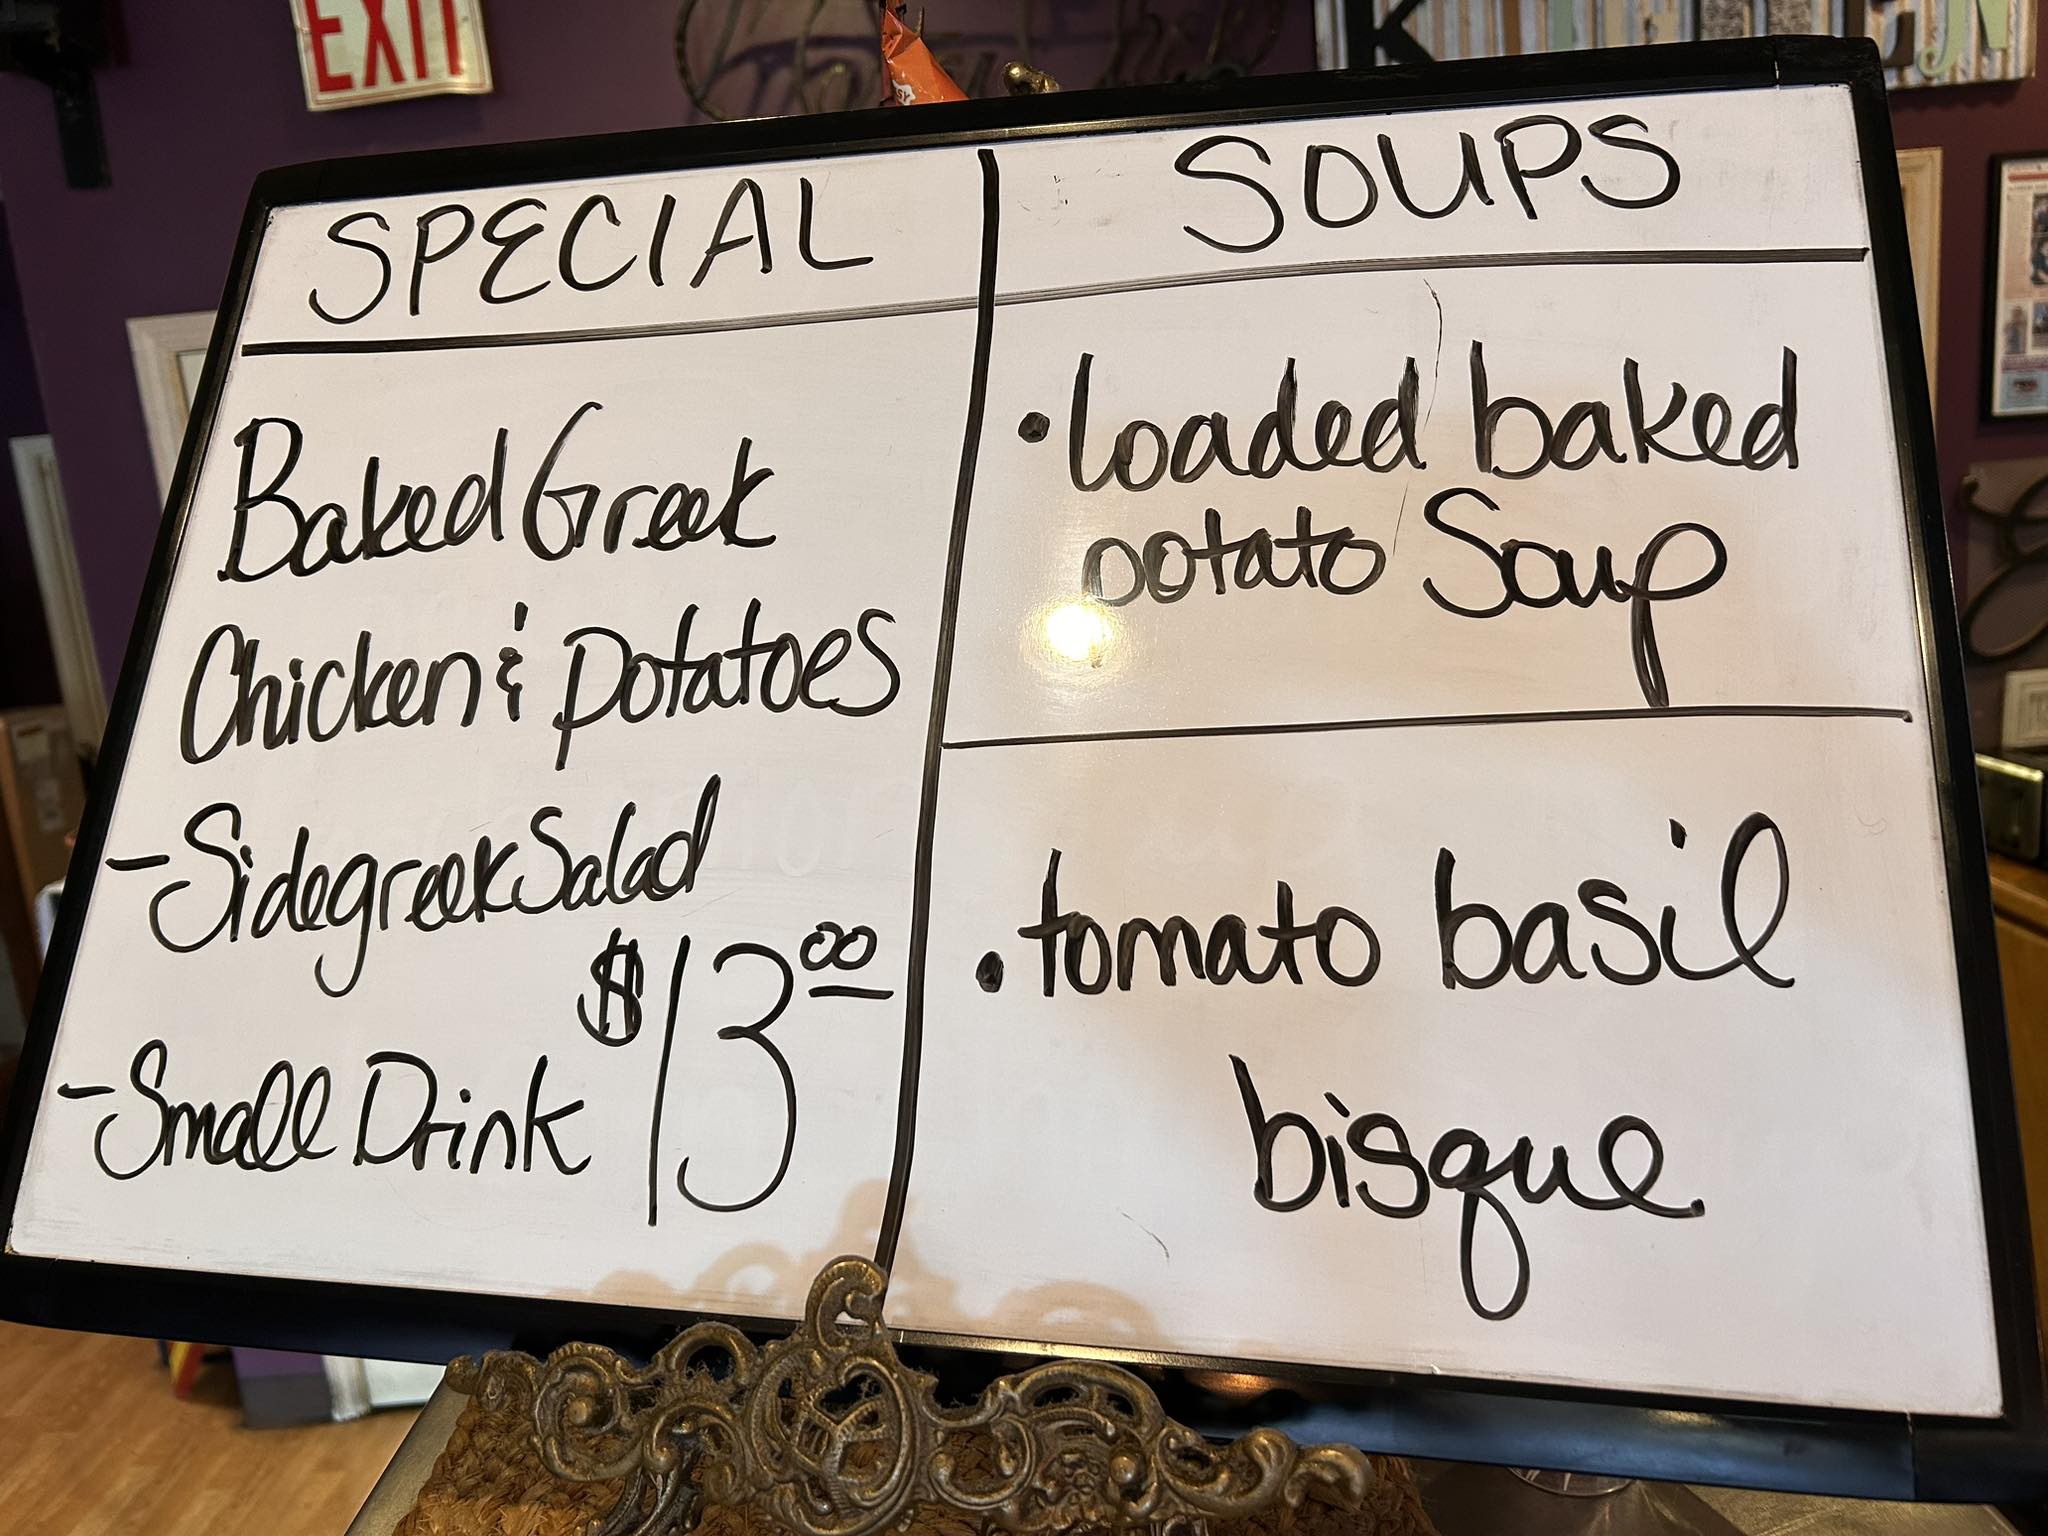 EXIT
SPECIAL
Baked Greek
Chicken & potatoes
- Side greek Salad
$13.00
- Small Drink
SOUPS
• loaded baked
potato Soup
• tomato basil
bisque